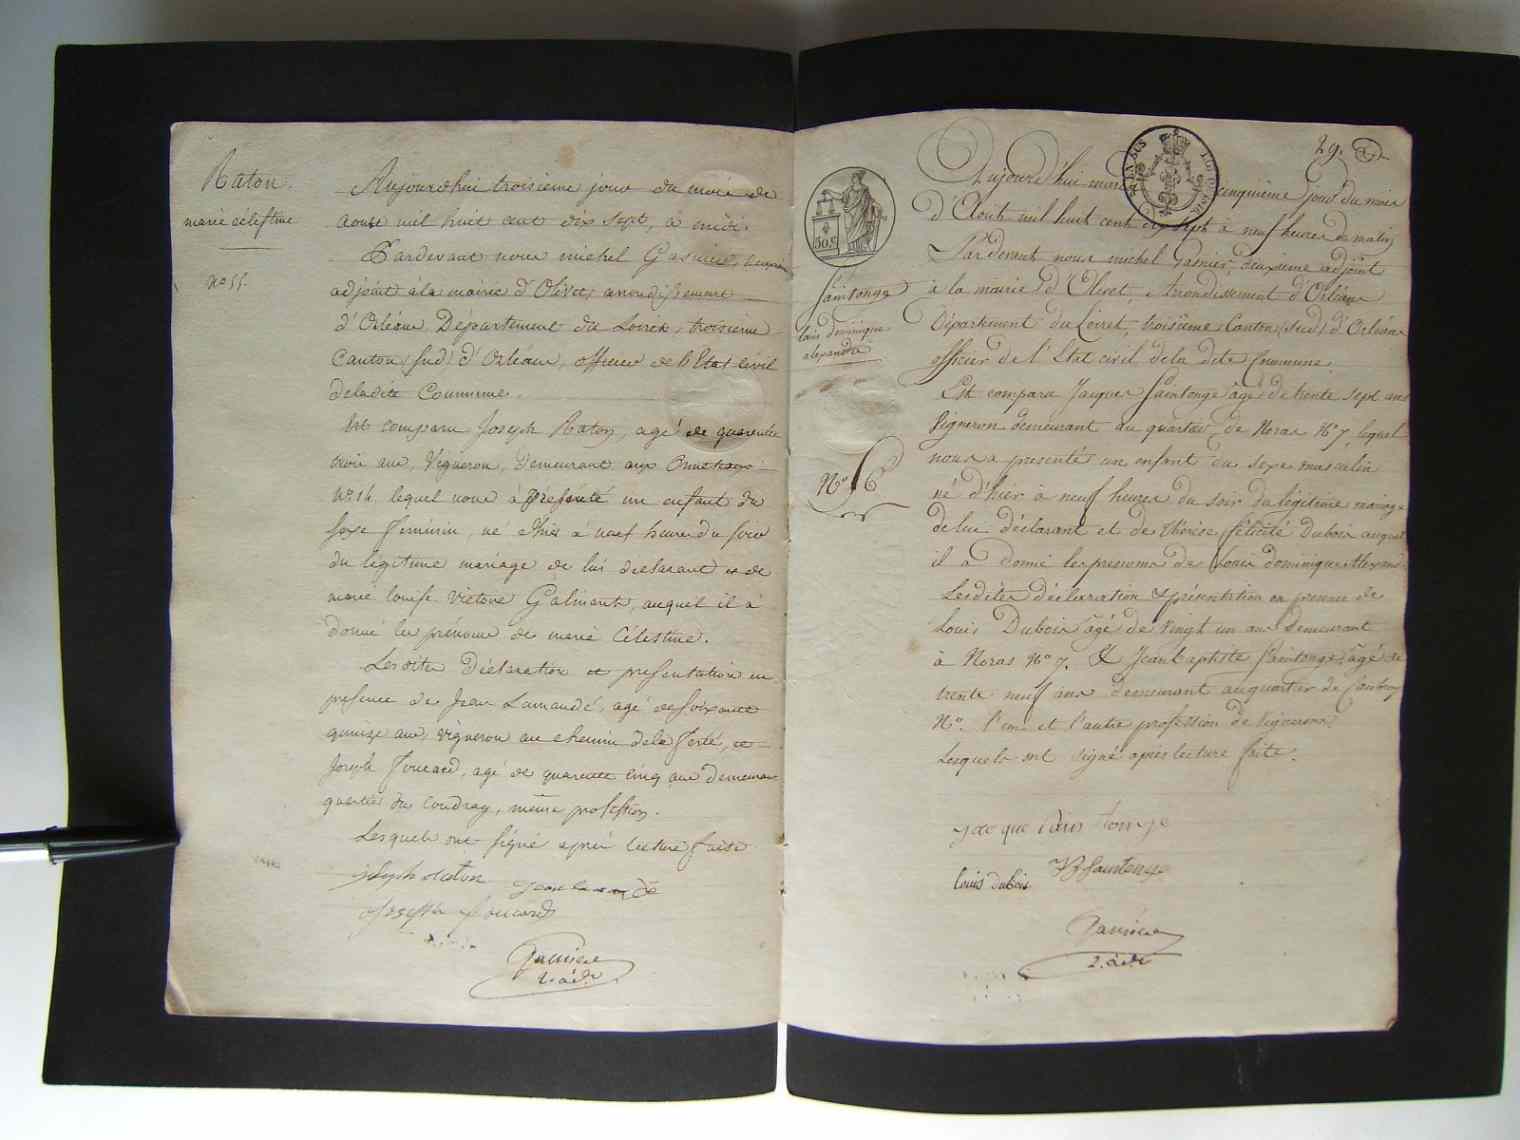 Raton.
marie célestine
No 55.
Aujourdhui troisième jour du mois de
aoust mil huit cent dix sept, à midi.
Pardevant nous michel Garnier, deuxième
adjoint à la mairie d'Olivet, arrondissement
d'Orléans, Département du Loiret, troisième
Canton (sud) d'Orléans, officier de l'Etat civil
de ladite Commune.
Est comparu Joseph Raton, agé de quarente
trois ans, Vigneron, demeurant aux
No. 14. lequel nous à présenté un enfant du
sexe féminin, né d'hier à neuf heure du soir
du légitime mariage de lui déclarant et de
marie louise victoire Galmont, auquel il à
donné les prénoms de marie Célestine.
Lesdites Déclaration et présentation en
présence de Jean Lamandé, agé de soixante
quinze ans, vigneron au chemin de la ferté, et
Joseph Foucard, agé de quarente cinq ans demeurant
quartier du Coudray, même profession.
Lesquels ont signé après lecture faite
joseph raton
jean lamandé
Joseph foucard
Garnier
2. adt
29.
50 c
Saintonge
louis dominique
alexandre
No 56
Aujourd'hui mardi cinquième jour du mois
d'Août mil huit cent dix sept à neuf heures du matin
Pardevant nous michel Garnier, deuxième adjoint
à la mairie d'Olivet, Arrondissement d'Orléans
Département du Loiret, troisième Canton (sud) d'Orléans
officier de l'Etat civil de la dite Commune.
Est comparu Jacques Saintonge âgé de trente sept ans
Vigneron demeurant au quartier de Noras No 7 lequel
nous a présenté un enfant du sexe masculin
né d'hier à neuf heures du soir du légitime mariage
de lui déclarant et de thérèse félicité Dubois auquel
il a donné les prénoms de Louis dominique Alexandre
Lesdites déclaration et présentation en présence de
Louis Dubois âgé de vingt un ans demeurant
à Noras No 7. Et Jean baptiste Saintonge âgé de
trente neuf ans demeurant au quartier de
No. l'un et l'autre profession de vignerons
Lesquels ont signé après lecture faite.
jacque sain tonge
louis dubois
JB Saintonge
Garnier
2. adt